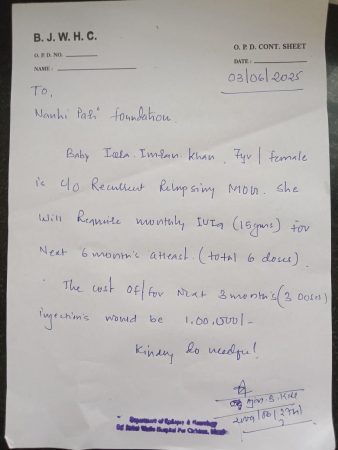 B. J. W. H. C.
O. P. D. CONT. SHEET
O. P. D. NO.
DATE :
NAME :
03/06/2025
To,
Nanhi Pari foundation
Baby Imran Khan, 7yr / female
is c/o Recurrent Relapsing MOG. She
will Require monthly IVIg (15gms) for
Next 6 months atleast. (total 6 doses).
The cost of/for Next 3 months (3 Doses)
injections would be 1,00,000/-
Kindly Do needful!
Department of Epilepsy & Neurology
Bai Jerbai Wadia Hospital For Children,